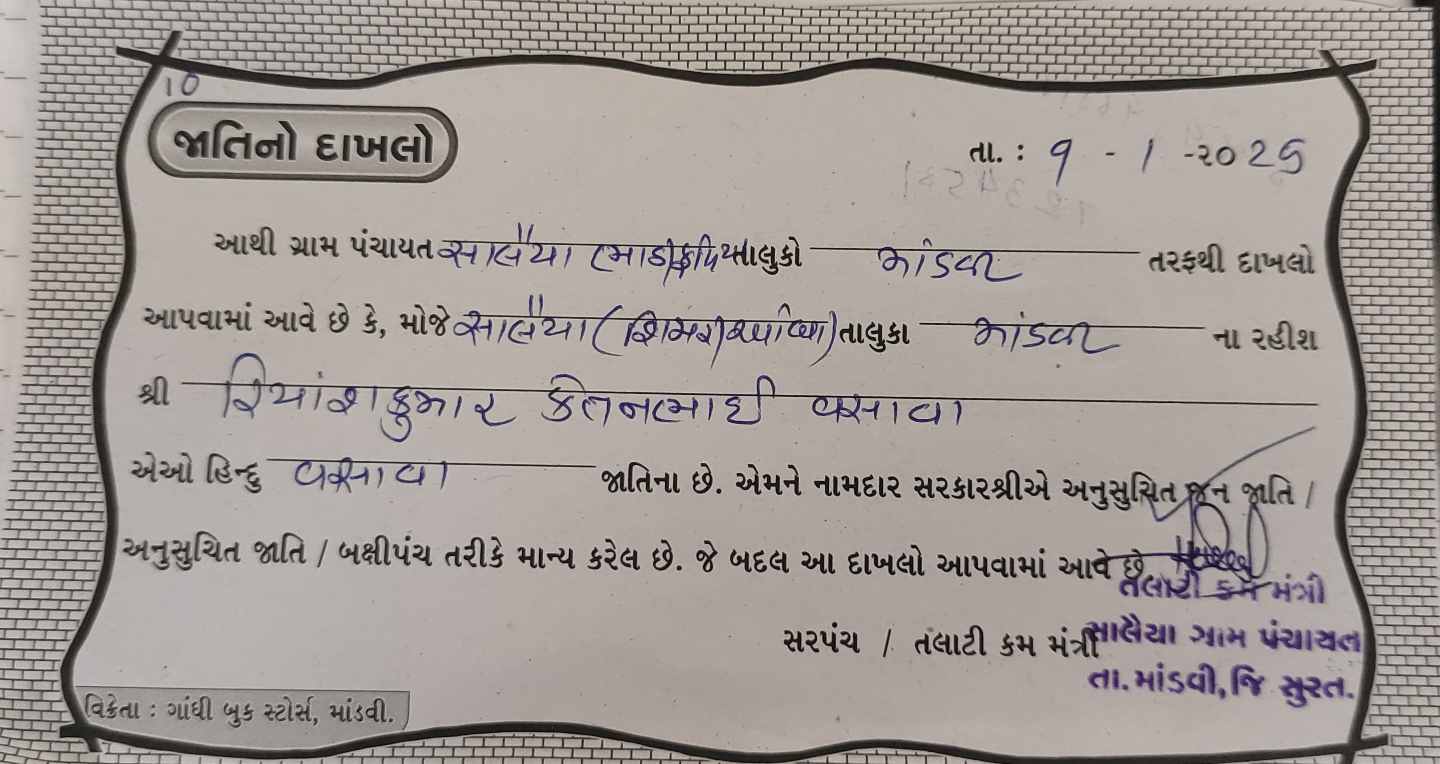 10
જાતિનો દાખલો
તા. : ૧ - 1 -૨૦25
આથી ગ્રામ પંચાયત સાલૈયા તાલુકો માંડવી તરફથી દાખલો
આપવામાં આવે છે કે, મોજે સાલૈયા તાલુકા માંડવી ના રહીશ
શ્રી રિયાંશકુમાર કેતનભાઈ વસાવા
એઓ હિન્દુ વસાવા જાતિના છે. એમને નામદાર સરકારશ્રીએ અનુસુચિત જન જાતિ /
અનુસુચિત જાતિ / બક્ષીપંચ તરીકે માન્ય કરેલ છે. જે બદલ આ દાખલો આપવામાં આવે છે
તલાટી કમ મંત્રી
સરપંચ / તલાટી કમ મંત્રી સાલૈયા ગ્રામ પંચાયત
તા. માંડવી, જિ સુરત.
વિક્રેતા : ગાંધી બુક સ્ટોર્સ, માંડવી.